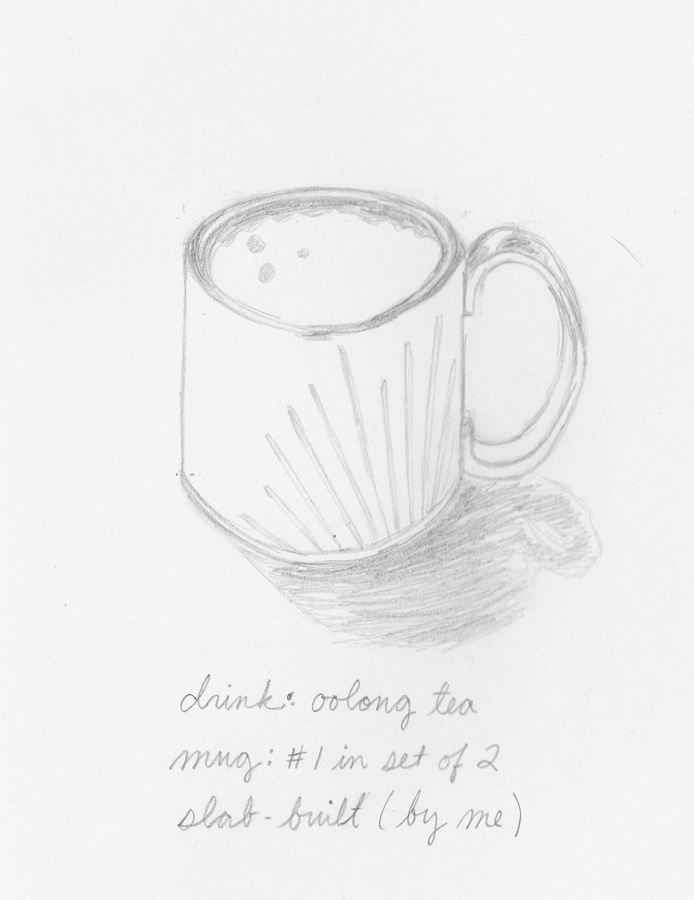 drink: oolong tea
mug: #1 in set of 2
slab-built (by me)